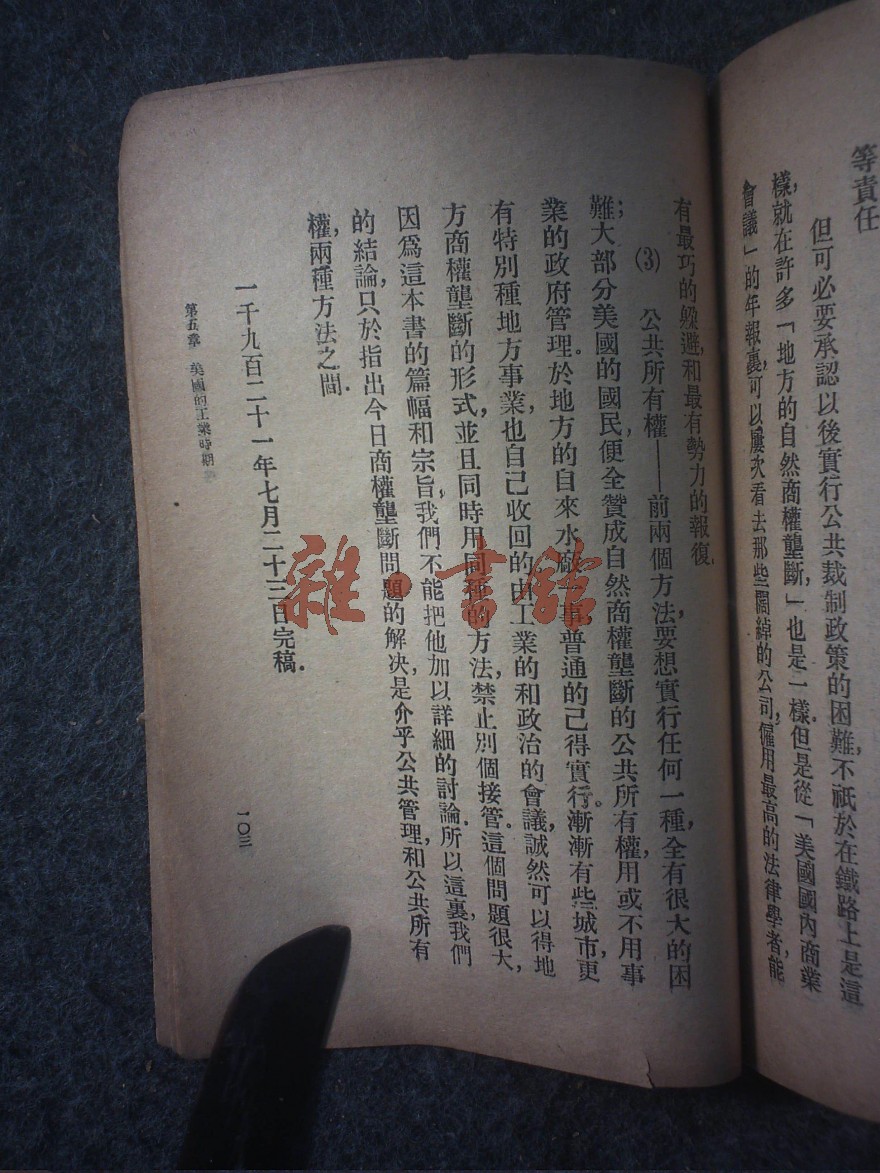 等責任
但可必要承認以後實行公共裁制政策的困難，不祇於在鐵路上是這
樣，就在許多「地方的自然商權壟斷，」也是一樣．但是從「美國國內商業
會議」的年報裏，可以屢次看去那些闊綽的公司，僱用最高的法律學者，能
有最巧的躱避，和最有勢力的報復．
(3) 公共所有權——前兩個方法，要想實行任何一種，全有很大的困
難；大部分美國的國民，便全贊成自然商權壟斷的公共所有權，用或不用事
業的政府管理。於地方的自來水廠一事，普通的已得實行。漸漸有些城市，更
有特別種地方事業，也自己收回的．由工業的和政治的會議，誠然可以得地
方商權壟斷的形式，並且同時用同種的方法，禁止別個接管．這個問題很大，
因爲這本書的篇幅和宗旨，我們不能把他加以詳細的討論．所以這裏，我們
的結論，只於指出今日商權壟斷問題的解决，是介乎公共管理，和公共所有
權，兩種方法之間．
一千九百二十一年七月二十三日完稿．
第五章 美國的工業時期
一〇三
雜·書館